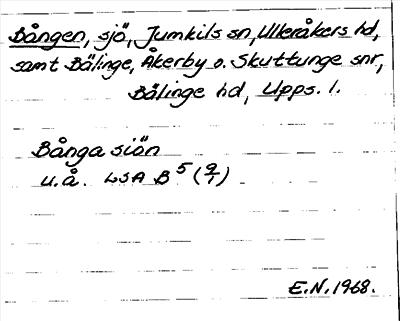 Bången, sjö, Jumkils sn, Ulleråkers hd,
samt Bälinge, Åkerby o. Skuttunge snr,
Bälinge hd, Upps. l.
Bånga siön
u.å. LSA B 5 (9/1)
E.N. 1968.